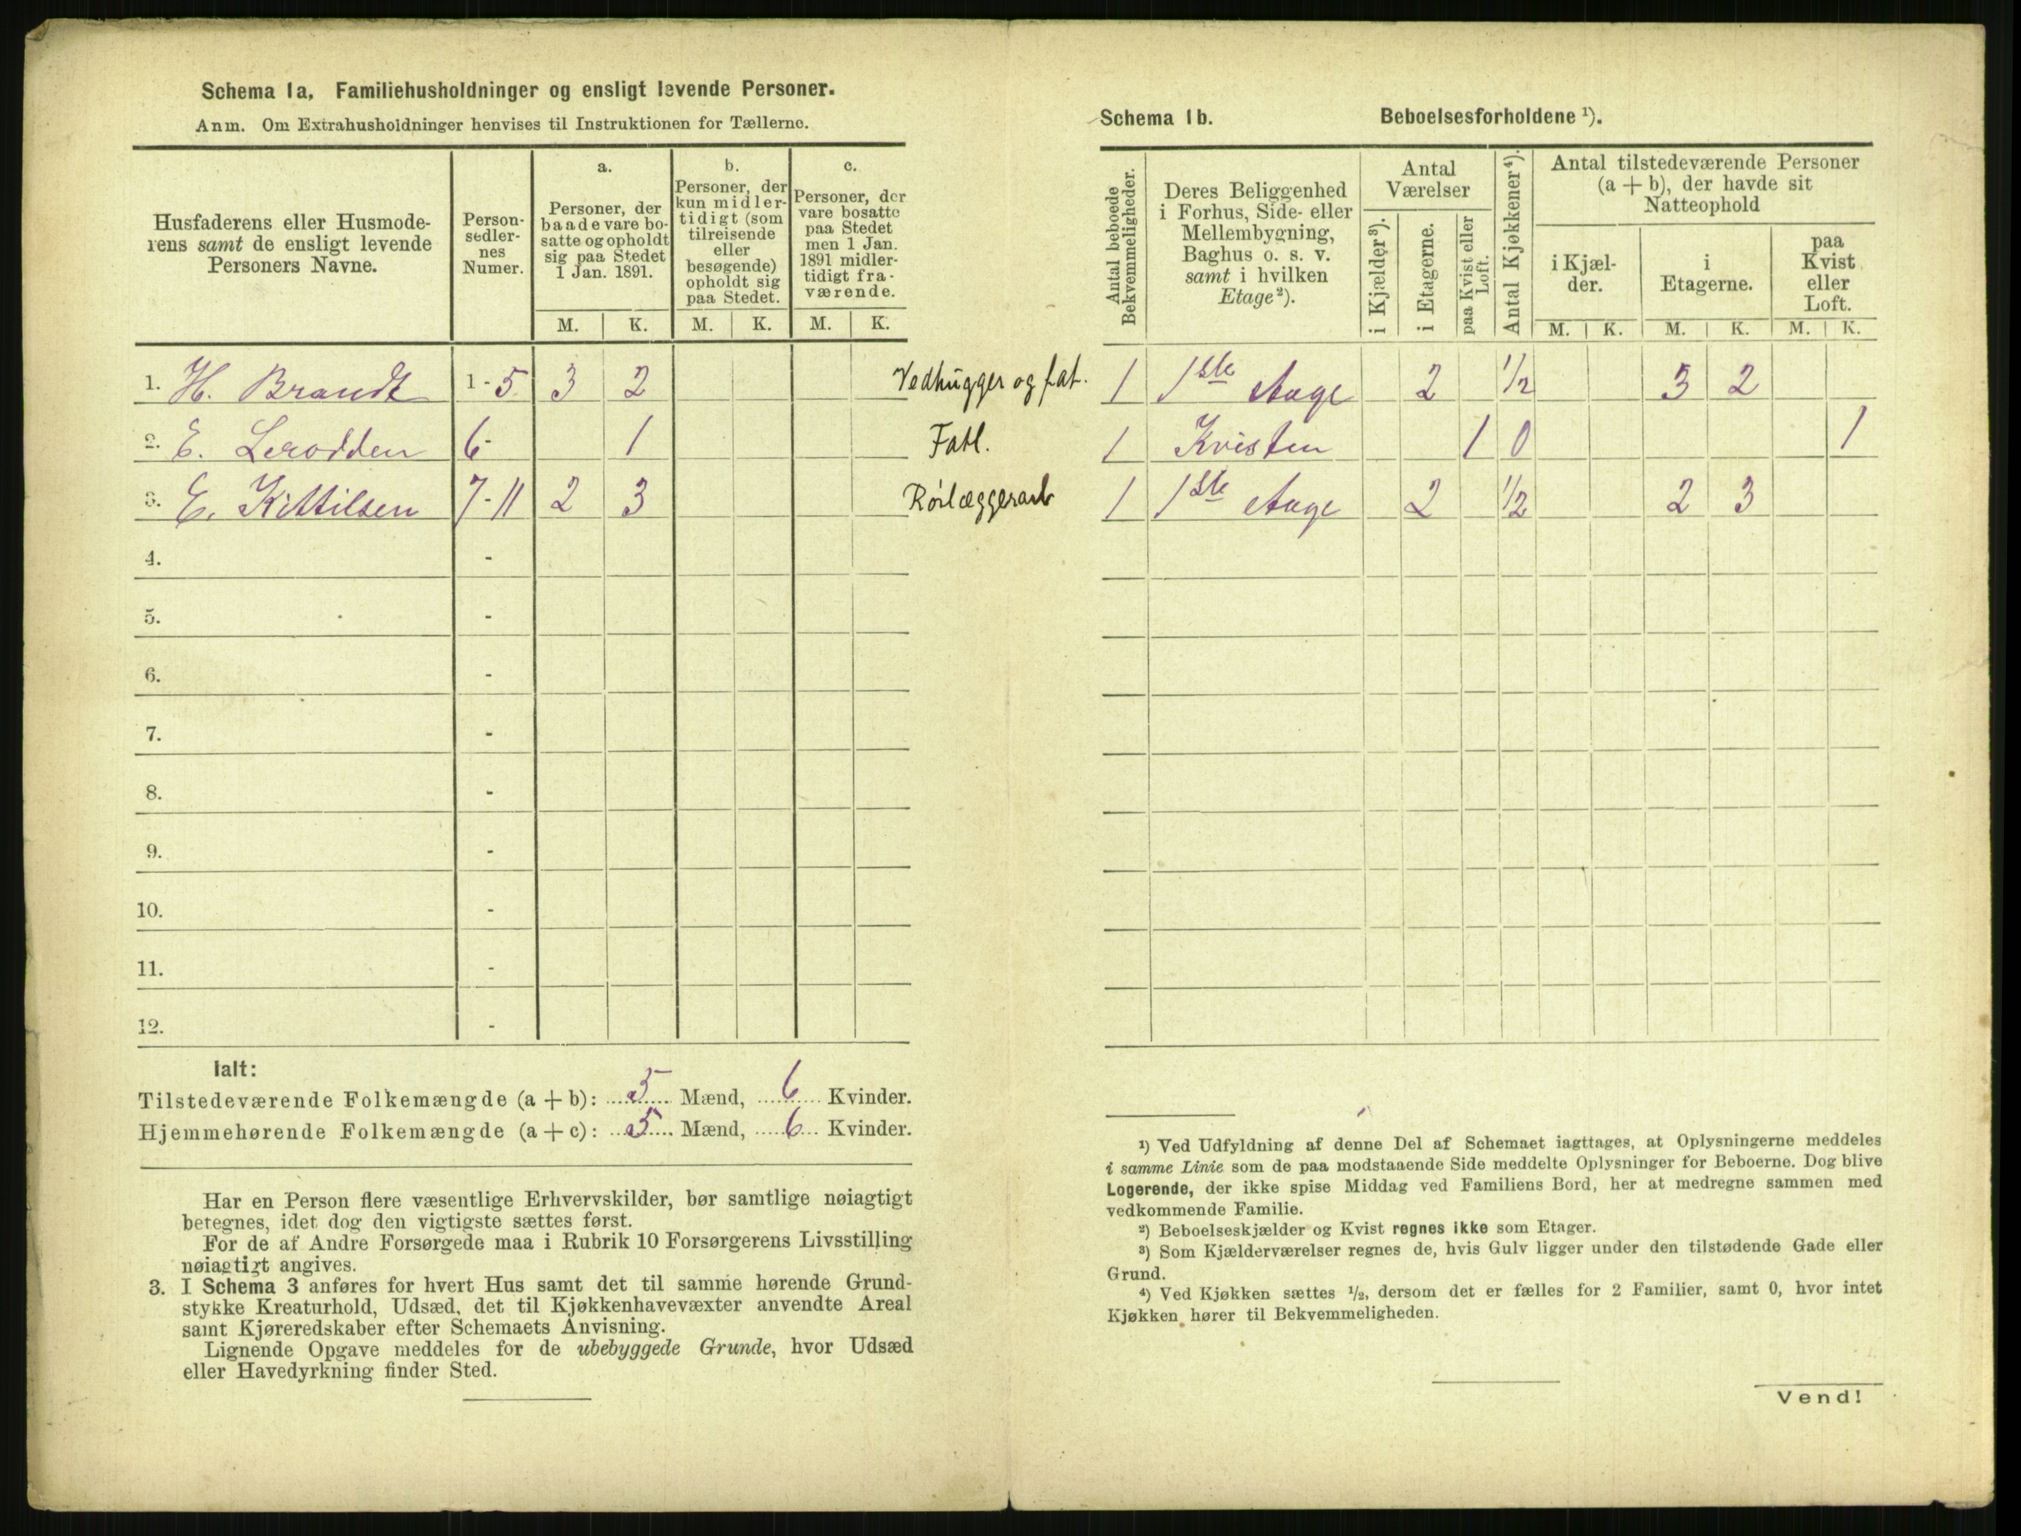 Schema 1a, Familiehusholdninger og ensligt levende Personer.
Anm. Om Extrahusholdninger henvises til Instruktionen for Tællerne.
Husfaderens eller Husmode-
rens samt de ensligt levende
Personers Navne.
Person-
sedler-
nes
Numer.
a.
Personer, der
baade vare bo-
satte og opholdt
sig paa Stedet
1 Jan. 1891.
b.
Personer, der
kun midler-
tidigt (som
tilreisende
eller
besøgende)
opholdt sig
paa Stedet.
c.
Personer, der
vare bosatte
paa Stedet
men 1 Jan.
1891 midler-
tidigt fra-
værende.
M. K. M. K. M. K.
1. H. Brandt 1-5 3 2 Vedhugger og fat.
2. E. Lerodden 6- 1 Fatl.
3. E. Kittilsen 7-11 2 3 Rörlæggerarb
4. -
5. -
6. -
7. -
8. -
9. -
10. -
11. -
12. -
Ialt:
Tilstedeværende Folkemængde (a + b): 5 Mænd, 6 Kvinder.
Hjemmehørende Folkemængde (a + c): 5 Mænd, 6 Kvinder.
Har en Person flere væsentlige Erhvervskilder, bør samtlige nøiagtigt
betegnes, idet dog den vigtigste sættes først.
For de af Andre Forsørgede maa i Rubrik 10 Forsørgerens Livsstilling
nøiagtigt angives.
3. I Schema 3 anføres for hvert Hus samt det til samme hørende Grund-
stykke Kreaturhold, Udsæd, det til Kjøkkenhavevæxter anvendte Areal
samt Kjøreredskaber efter Schemaets Anvisning.
Lignende Opgave meddeles for de ubebyggede Grunde, hvor Udsæd
eller Havedyrkning finder Sted.
Schema 1b. Beboelsesforholdene ¹).
Antal beboede
Bekvemmeligheder.
Deres Beliggenhed
i Forhus, Side- eller
Mellembygning,
Baghus o. s. v.
samt i hvilken
Etage²).
Antal
Værelser
i Kjælder³).
i Etagerne.
paa Kvist eller
Loft.
Antal Kjøkkener⁴).
Antal tilstedeværende Personer
(a + b), der havde sit
Natteophold
i Kjæl-
der.
i
Etagerne.
paa
Kvist
eller
Loft.
M. K. M. K. M. K.
1 1ste Etage 2 1/2 3 2
1 Kvisten 1 0 1
1 1ste Etage 2 1/2 2 3
¹) Ved Udfyldning af denne Del af Schemaet iagttages, at Oplysningerne meddeles
i samme Linie som de paa modstaaende Side meddelte Oplysninger for Beboerne. Dog blive
Logerende, der ikke spise Middag ved Familiens Bord, her at medregne sammen med
vedkommende Familie.
²) Beboelseskjælder og Kvist regnes ikke som Etager.
³) Som Kjælderværelser regnes de, hvis Gulv ligger under den tilstødende Gade eller
Grund.
⁴) Ved Kjøkken sættes ½, dersom det er fælles for 2 Familier, samt 0, hvor intet
Kjøkken hører til Bekvemmeligheden.
Vend!